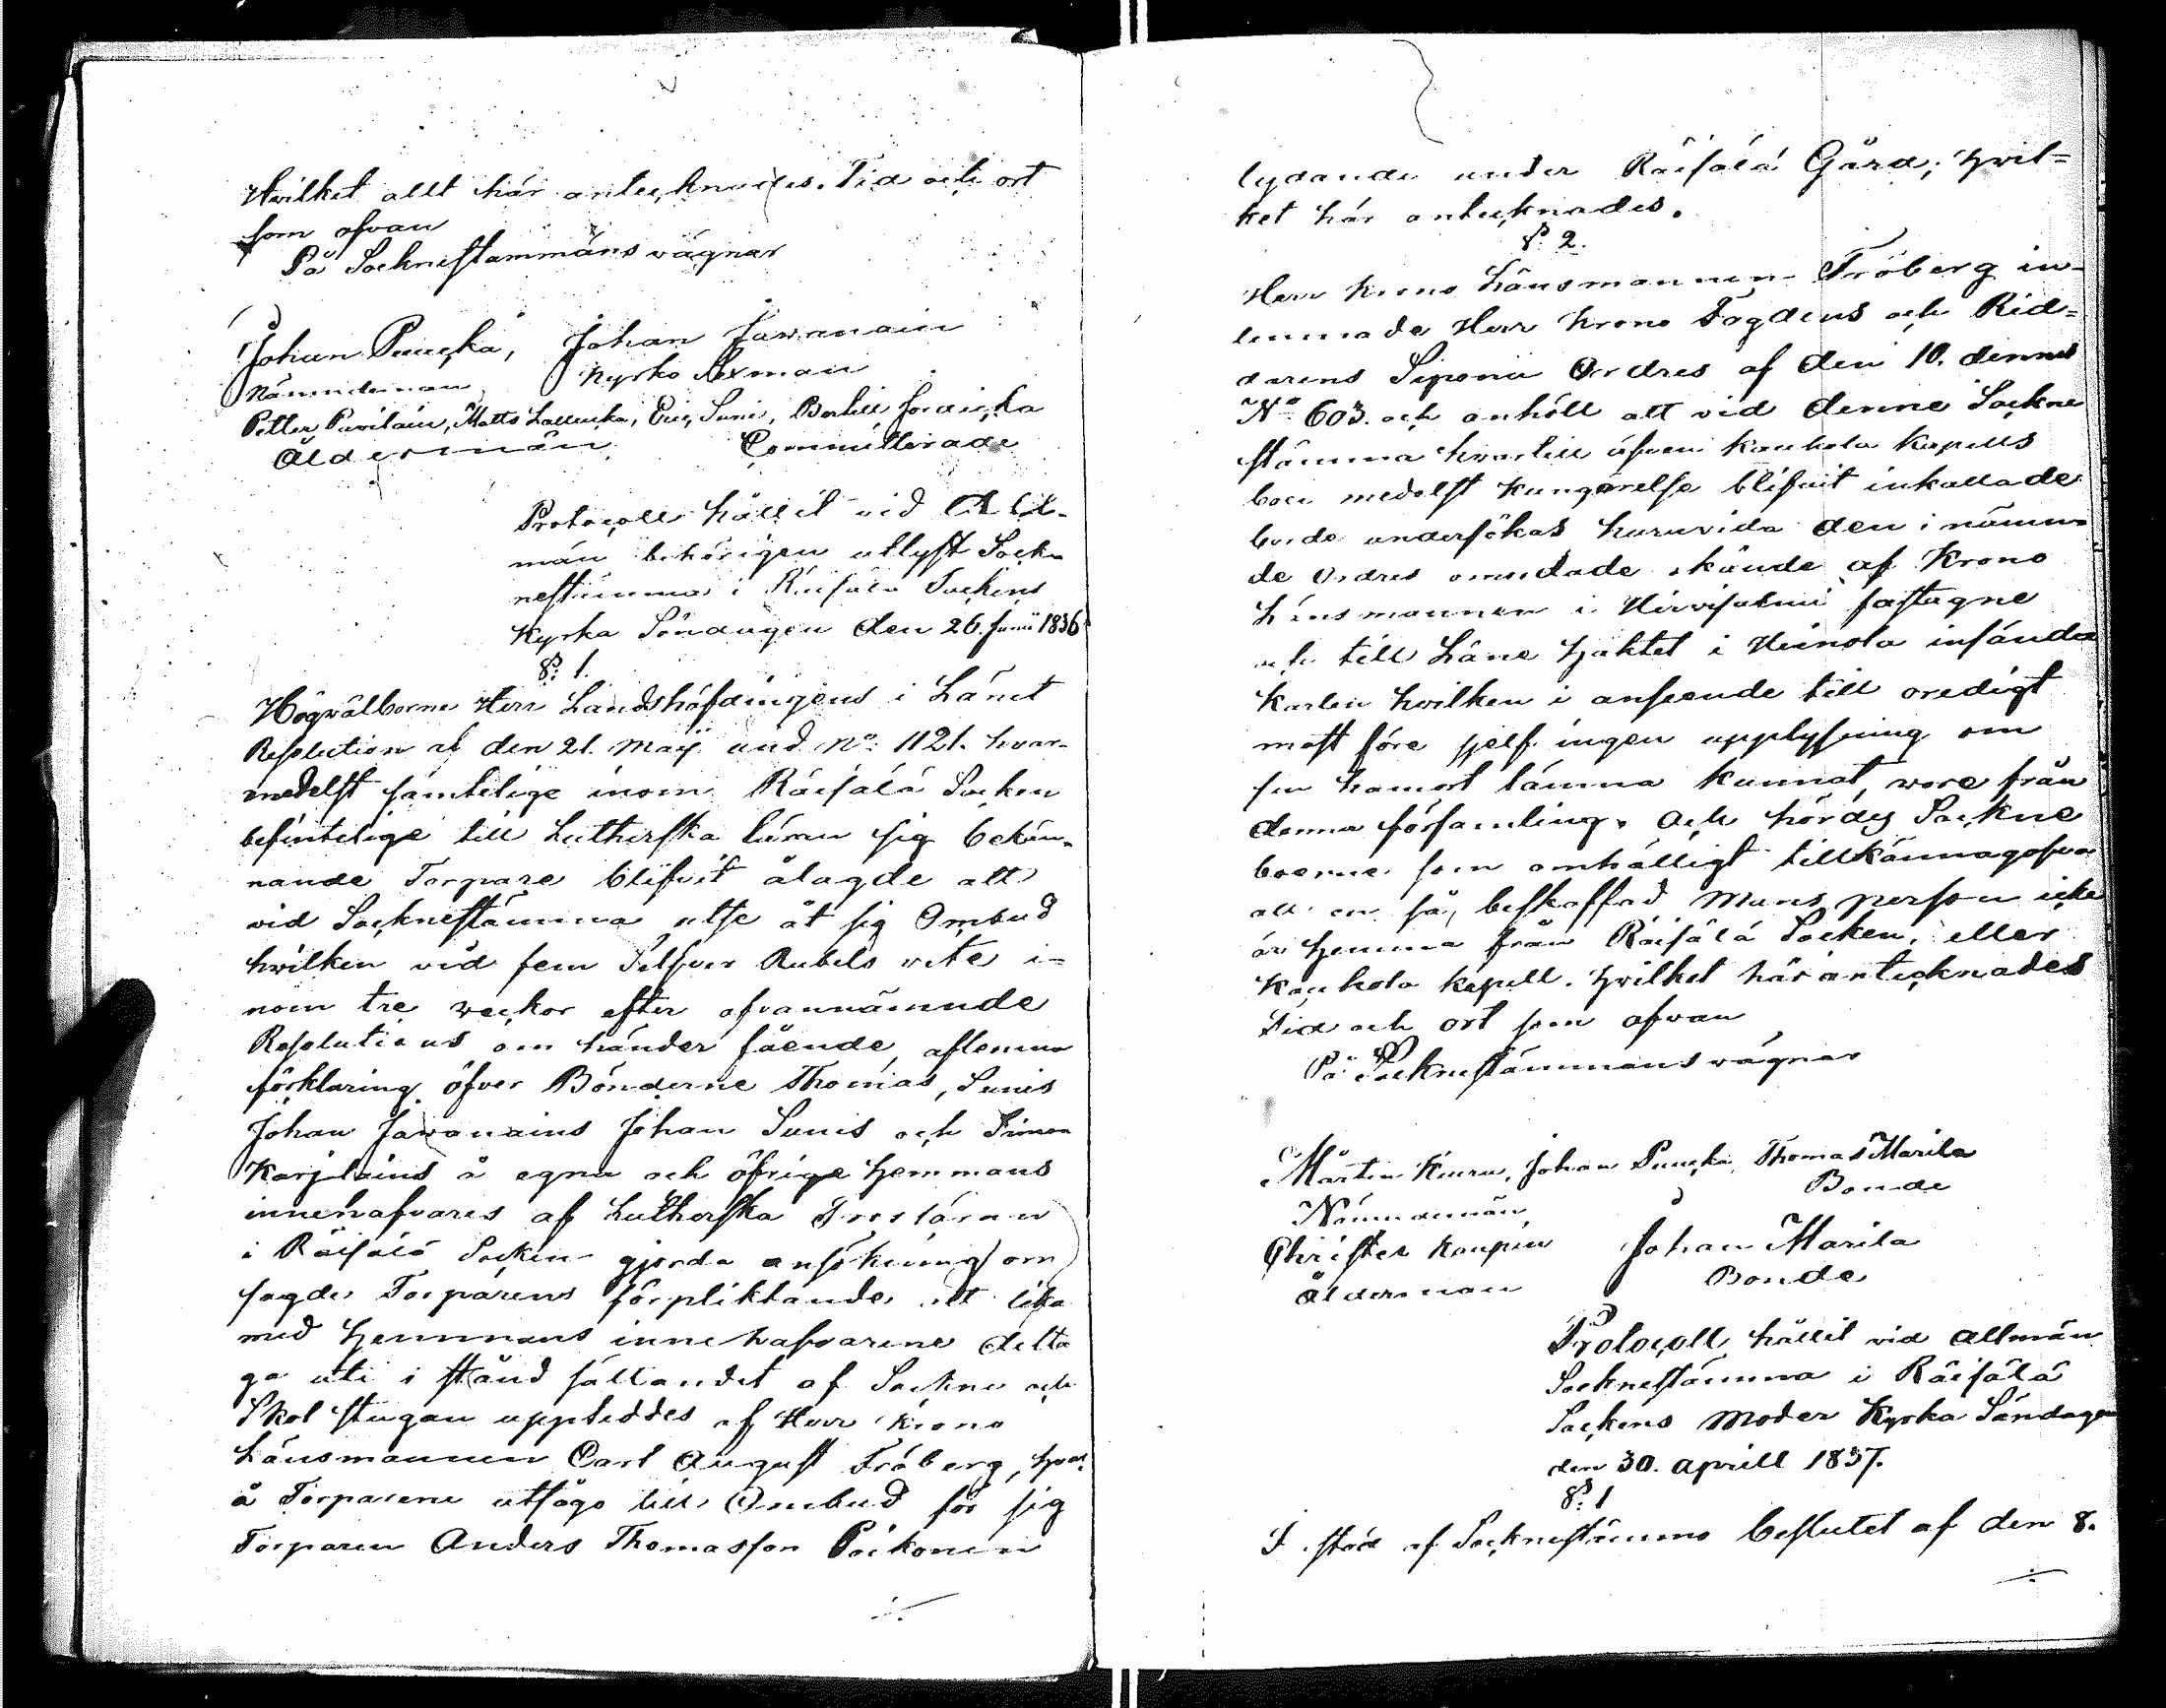 Hvilket allt här antecknades. Tid och ort
som ofvan
På Socknestammans vägnar
Johan Puucka, Johan Jawanain
Nämndeman Kyrko Sexman
Petter Puvilain, Matts Lallucka, Eric Suni, Bertill Jordicka
Ålderman Committerade
Protocoll hållit vid All-
män behörigen utlyst Sock-
nestämma i Räisälä Sockens
Kyrka Söndagen den 26. Junii 1836
§. 1.
Högvälborne Herr Landshöfdingens i Länet
Resolution af den 21. Maij und. No: 1121. hvar-
medelst samtelige inom Räisälä Socken
befintelige till Lutherska läran sig bekän-
nande Torpare blifvit ålagde att
vid Socknestämma utse åt sig Ombud
hvilken vid fem Silfver Rubels vite i-
nom tre veckor efter ofvannämnde
Resolutions om händer fående, aflemna
förklaring öfver Bönderne Thomas, Sunis
Johan Jawanains Johan Sunis och Simon
Karjlains å egna och öfrige Hemmans
innehafvares af Lutherska Trosläran
i Räisälä Socken gjorda ansökning om
sagde Torparens förpliktande att lika
med Hemmans innehafvarene delta
ga uti i stånd sällandet af Sockne och
Skol stugan uppleddes af Herr Krono
Länsmannen Carl August Fröberg, hvar
å Torparene utsågo till Ombud för sig
Torparen Anders Thomasson Poikonen
lydande under Räisälä Gård; hvil=
ket här antecknades.
§. 2.
Herr Krono Länsmannen Fröberg in-
lemnade Herr Krono Fogdens och Rid=
darens Siponii Ordres af den 10. dennes
No 603. och anhöll att vid denne Sockne
stämma hvartill äfven Kaukola Kapells
boer medelst kungörelse blifvit inkallade
borde undersökas huruvida den i nämn-
de Ordres omrelade okände af Krono
Länsmannen i Hirvisalmi fasttagne
och till Läne Häktet i Heinola insände
Karlen hvilken i anseende till oredigt
mål före sjelf ingen upplysning om
sin hemort lämna kunnat, vore från
denna församling. Och hördes Sockne
boerne som enhälligt tillkännagofvo
att en så beskaffad Mans person icke
är hemma från Räisälä Socken, eller
Kaukola kapell. Hvilket här antecknades
Tid och ort som ofvan
På Socknestämmans vägnar
Mårtin Kiuru, Johan Puucka, Thomas Marila
Nämndemän Bonde
Christer Kaupin Johan Marila
Ålderman Bonde
Protocoll hållit vid allmän
Socknestämma i Räisälä
Sockens Moder Kyrka Söndagen
den 30. aprill 1837.
§. 1
I stöd af Socknestämmo beslutet af den 8.